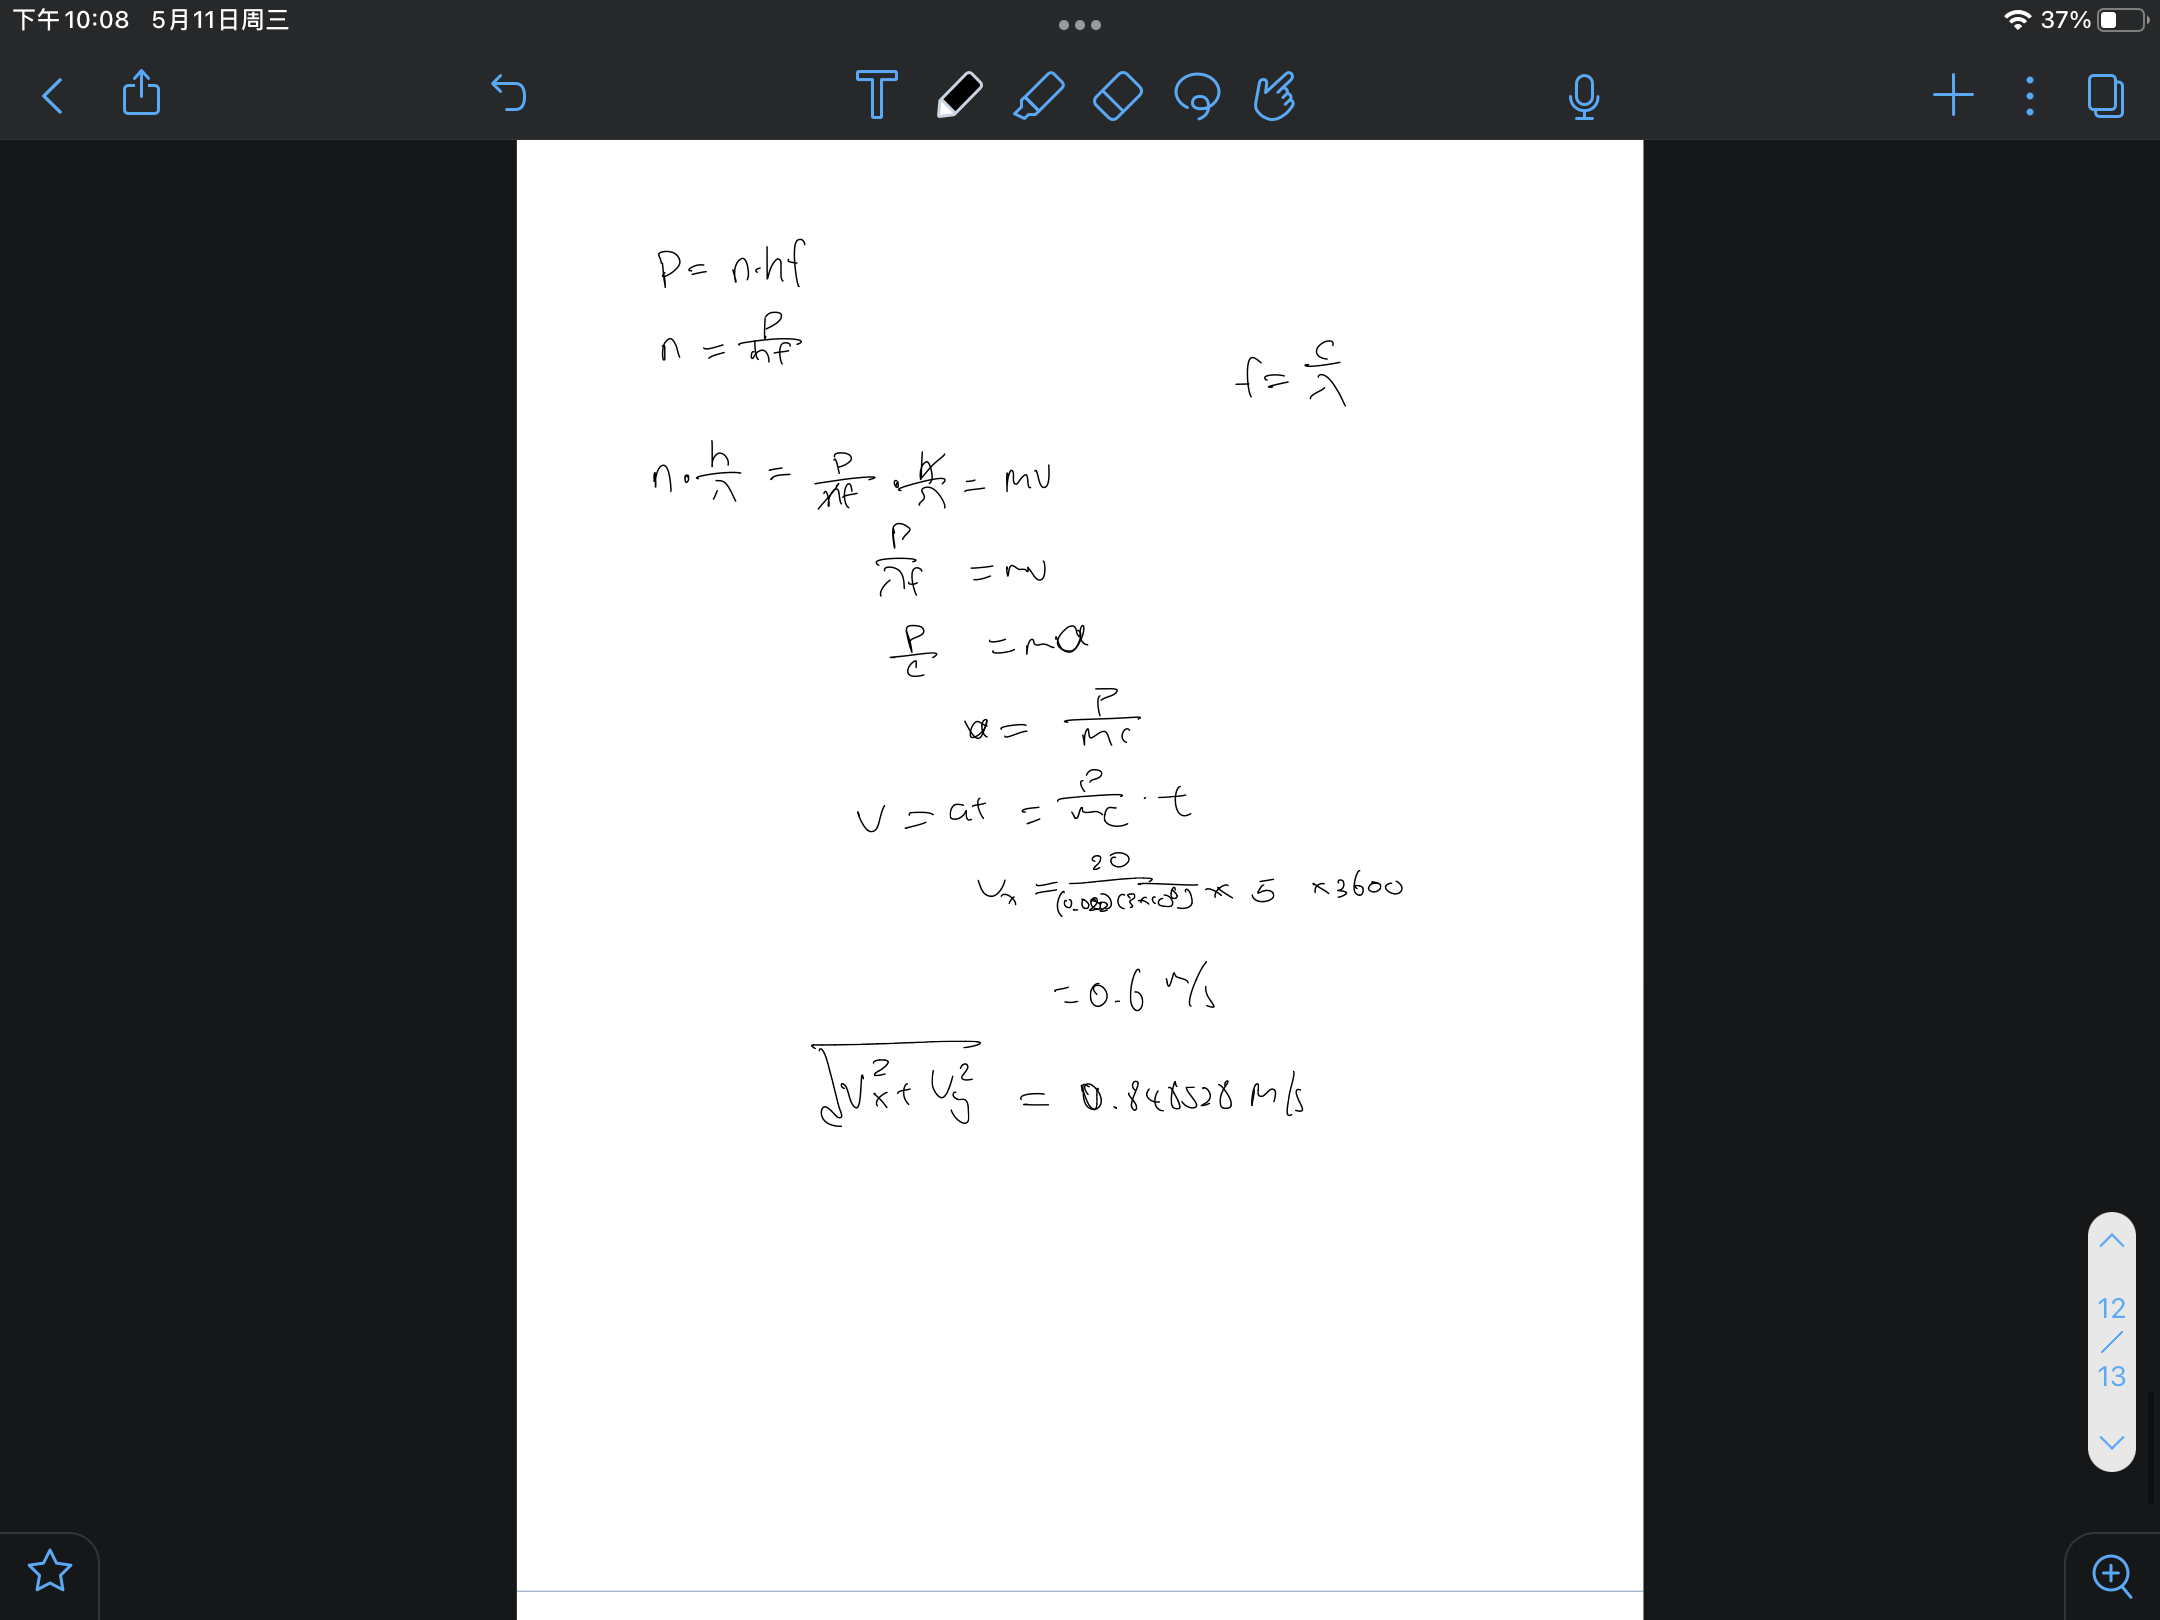 下午10:08 5月11日周三
37%
P = n·hf
n = P/hf
f = c/λ
n·h/λ = P/hf · h/λ = mv
P/λf = mv
P/c = ma
a = P/mc
v = at = P/mc · t
Vx = 20/(0.002)(3×10⁸) × 5 × 3600
= 0.6 m/s
√Vx² + Vy² = 0.848528 m/s
12
/
13